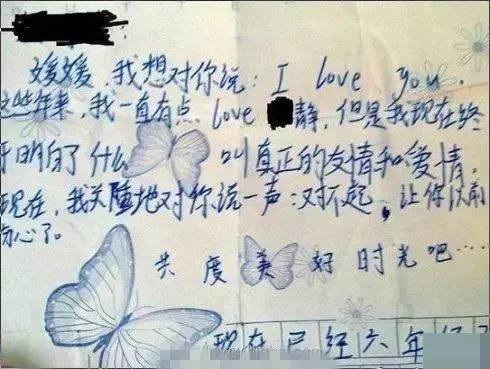 媛媛,我想对你说:I love you.
这些年来,我一直有点 love 静,但是我现在终
于明白了什么 叫真正的友情和爱情.
现在,我关隆地对你说一声:对不起,让你以前
伤心了。
共度美好时光吧……
现在已经六年级